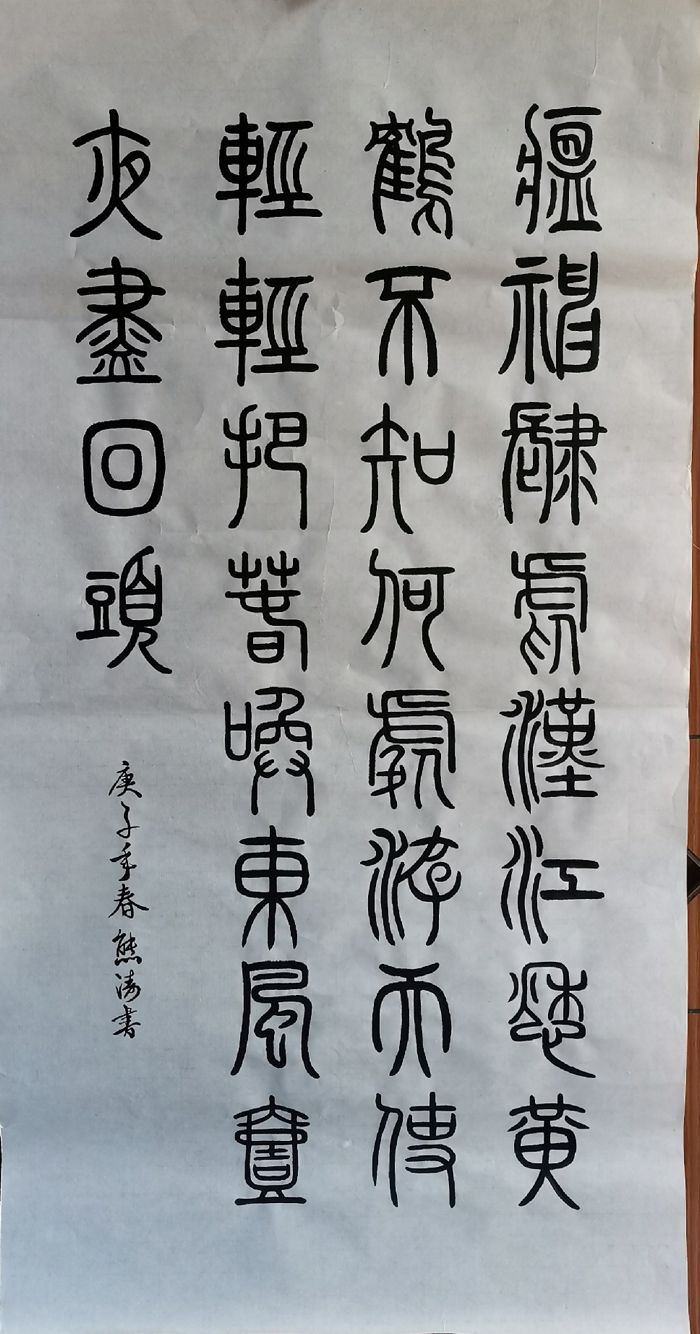 瘟神肆虐漢江愁黃
鶴不知何處游天使
輕輕把春喚東風壹
夜盡回頭
庚子年春熊濤書